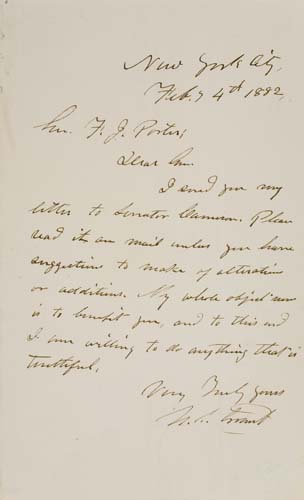 New York City,
Feb.y 4th 1882
Gen. F. J. Porter;
Dear Gn.
I send you my
letter to Senator Cameron. Please
read it an mail unless you have
suggestions to make of alteration
or additions. My whole object now
is to benefit you, and to this end
I am willing to do anything that is
truthful.
Very Truly yours
U. S. Grant